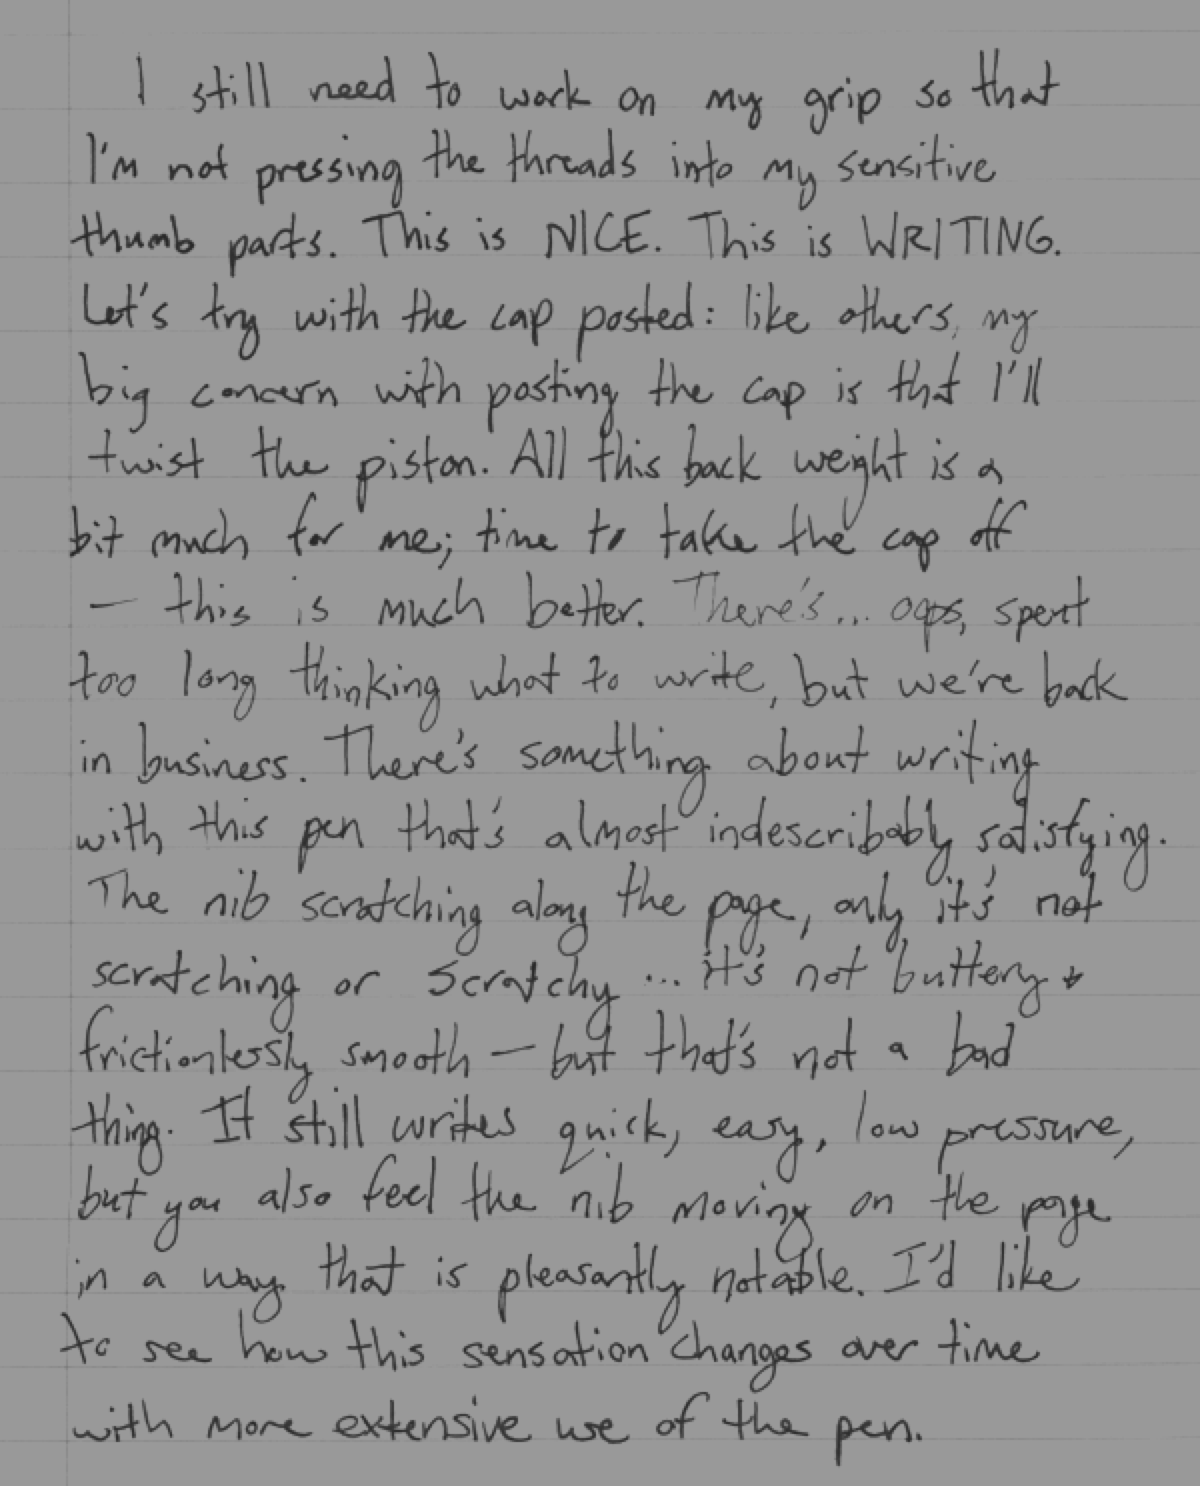 I still need to work on my grip so that
I'm not pressing the threads into my sensitive
thumb parts. This is NICE. This is WRITING.
Let's try with the cap posted: like others, my
big concern with posting the cap is that I'll
twist the piston. All this back weight is a
bit much for me; time to take the cap off
— this is much better. There's... oops, spent
too long thinking what to write, but we're back
in business. There's something about writing
with this pen that's almost indescribably satisfying.
The nib scratching along the page, only it's not
scratching or scratchy ... it's not buttery +
frictionlessly smooth — but that's not a bad
thing. It still writes quick, easy, low pressure,
but you also feel the nib moving on the page
in a way that is pleasantly notable. I'd like
to see how this sensation changes over time
with more extensive use of the pen.